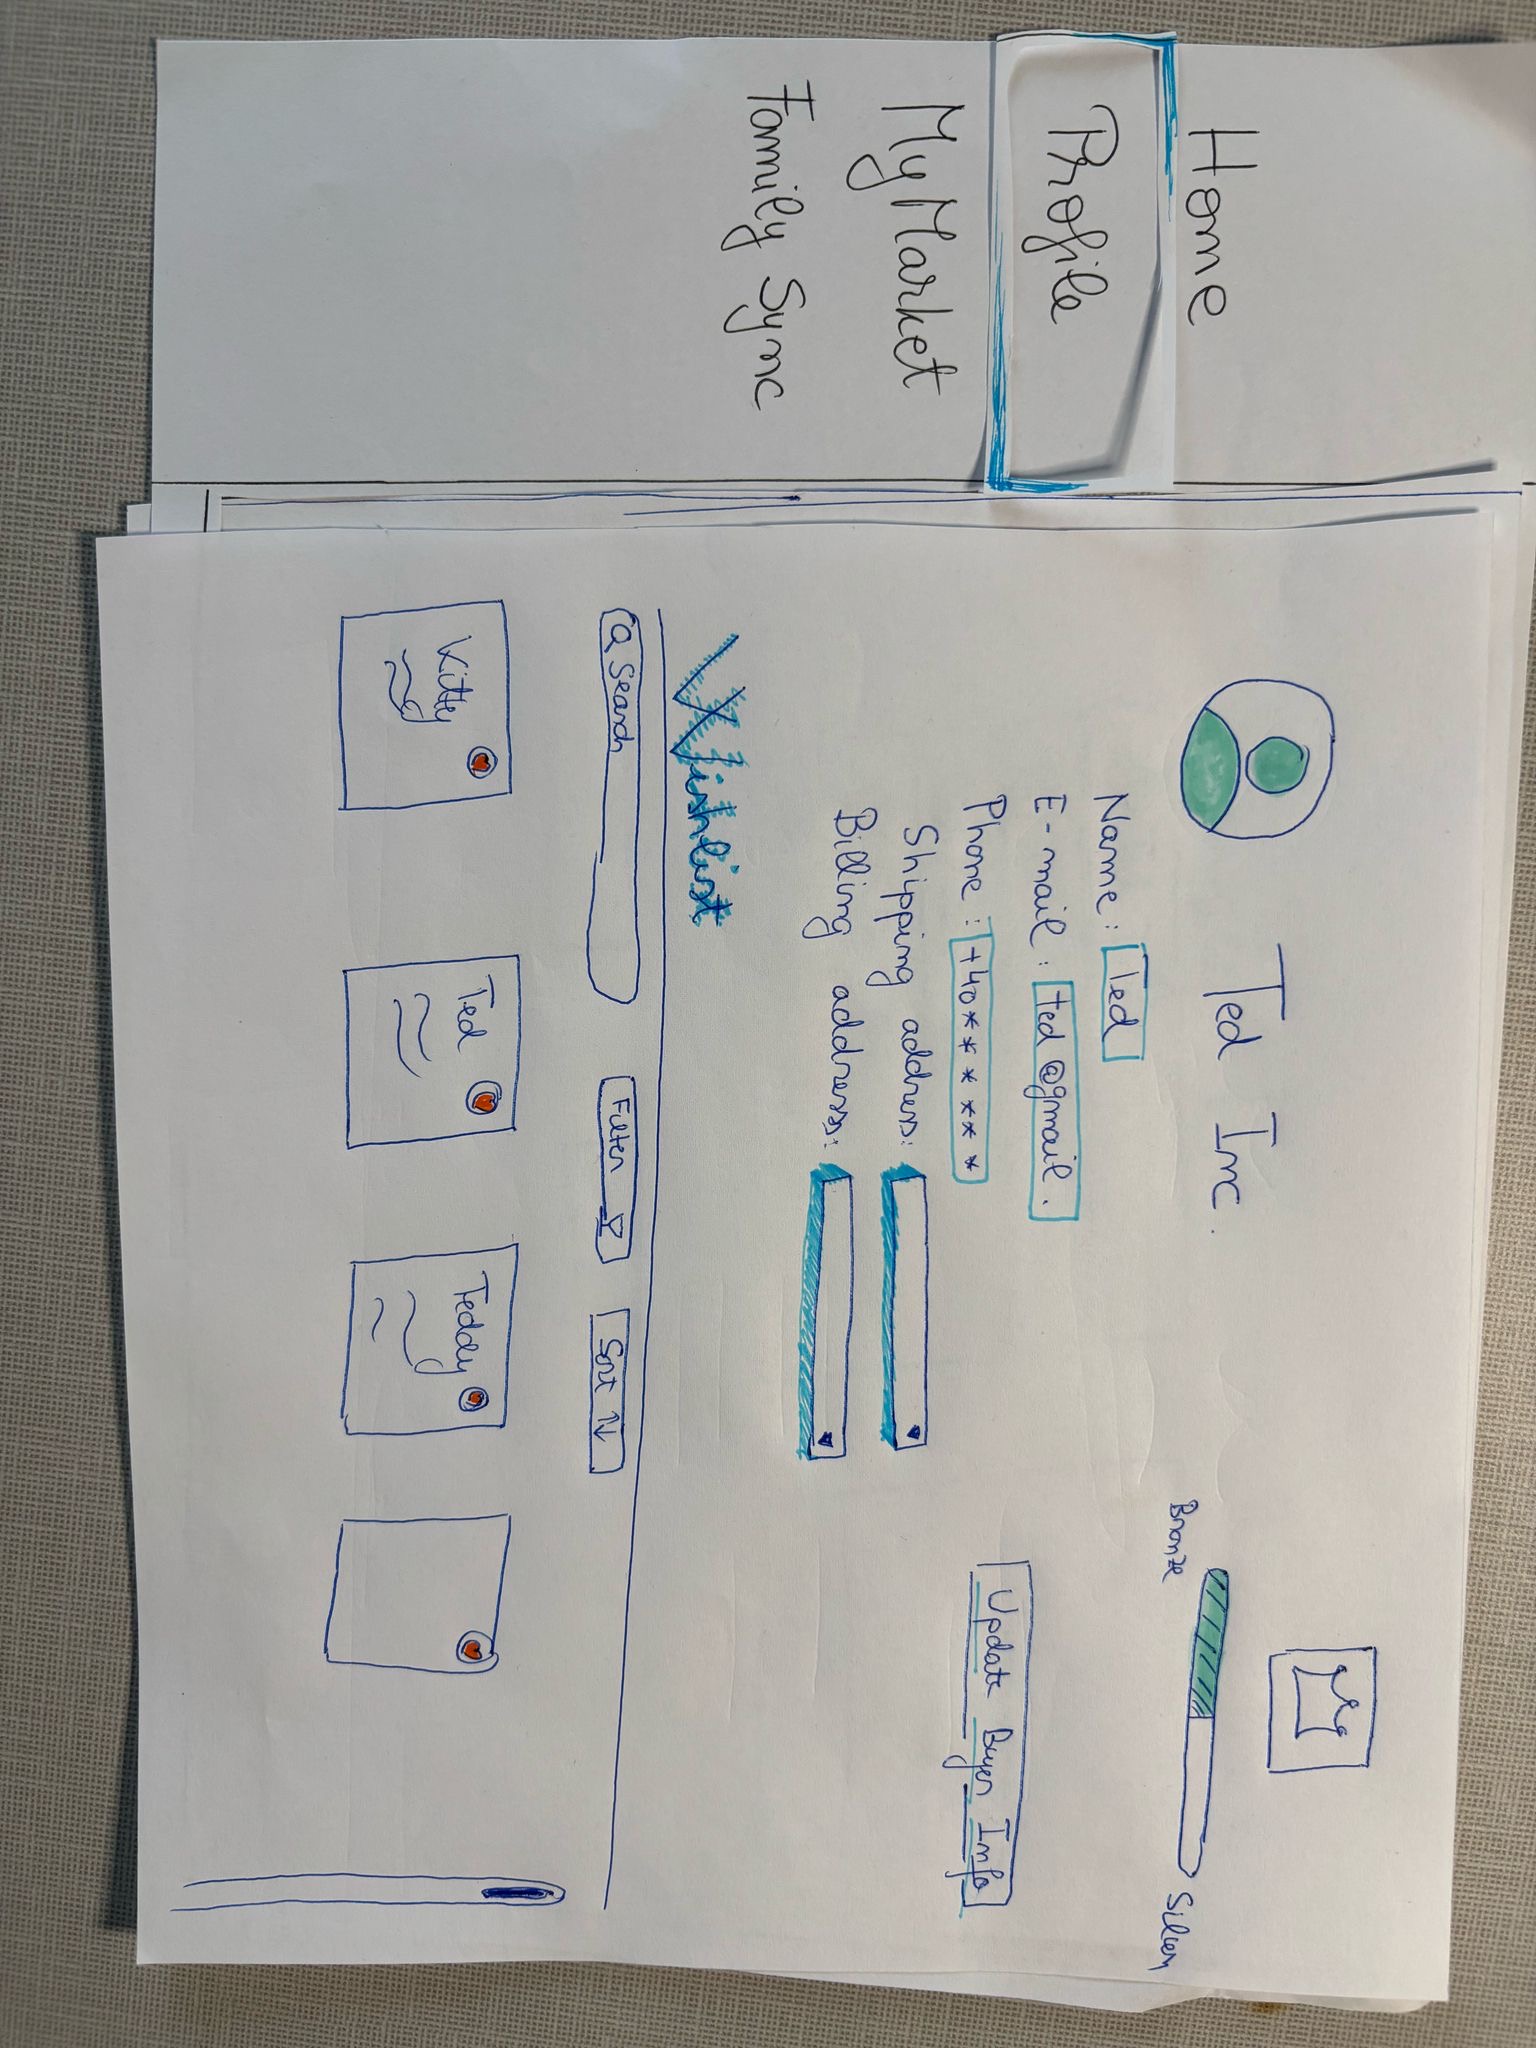 Home
Profile
My Market
Family Sync
Ted Inc.
Bronze
Silver
Name: Ted
E-mail: ted@gmail.
Phone: +40******
Shipping address:
Billing address:
Update Buyer Info
Wishlist
Search
Filter
Sort
Kitty
Ted
Teddy